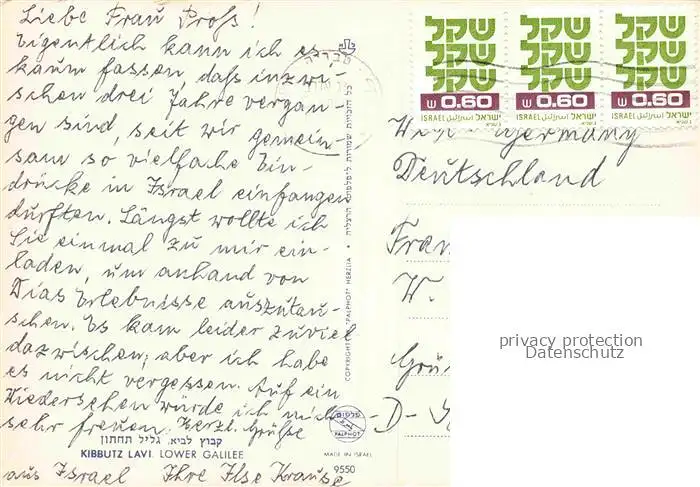 Liebe Frau Proß!
Eigentlich kann ich es
kaum fassen, daß inzwi-
schen drei Jahre vergan-
gen sind, seit wir gemein-
sam so vielfache Ein-
drücke in Israel einfangen
durften. Längst wollte ich
Sie einmal zu mir ein-
laden, um anhand von
Dias Erlebnisse auszutau-
schen. Es kam leider zuviel
dazwischen; aber ich habe
es nicht vergessen. Auf ein
Wiedersehen würde ich mich
sehr freuen. Herzl. Grüße
aus Israel Ihre Ilse Krause
קבוץ לביא, גליל תחתון
KIBBUTZ LAVI, LOWER GALILEE
כל הזכויות שמורות לפלפוט הרצליה • COPYRIGHT "PALPHOT" HERZLIA
פלפוט
PALPHOT
MADE IN ISRAEL
9550
טבריה
שקל שקל שקל
שקל שקל שקל
שקל שקל שקל
ש 0.60 ש 0.60 ש 0.60
ISRAEL اسرائيل ישראל ISRAEL اسرائيل ישראל ISRAEL اسرائيل ישראל
Germany
Deutschland
Frau
W.
Grü
-D-
privacy protection
Datenschutz